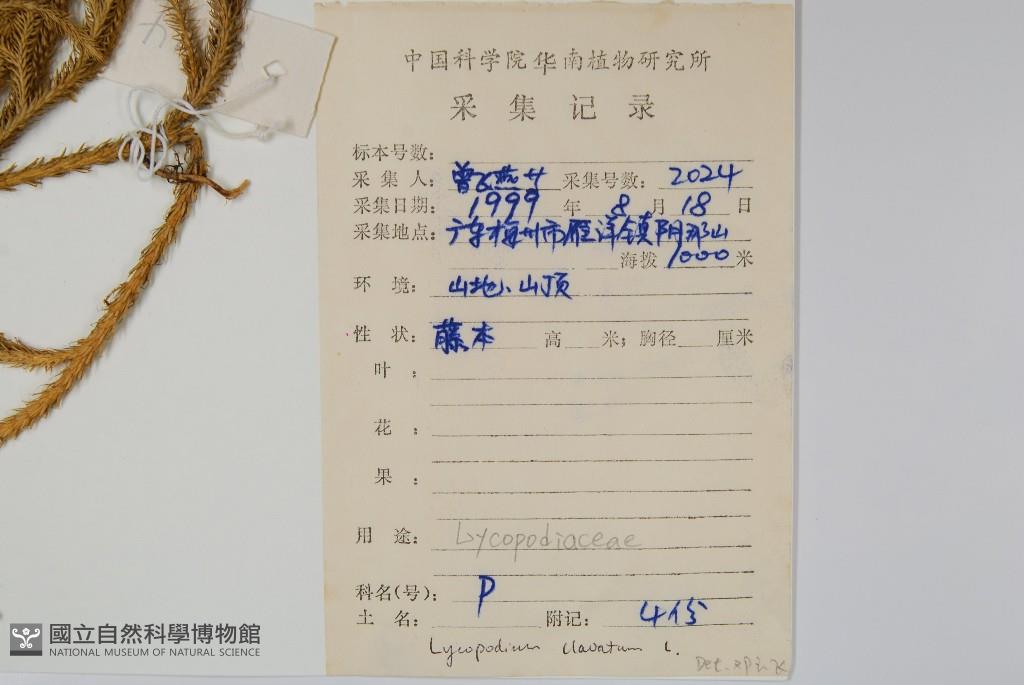 中国科学院华南植物研究所
采集记录
标本号数:
采集人: 曾 采集号数: 2024
采集日期: 1999 年 8 月 18 日
采集地点: 广东梅州市雁洋镇阴那山
海拨 1000 米
环境: 山地、山顶
性状: 藤本 高 米; 胸径 厘米
叶:
花:
果:
用途: Lycopodiaceae
科名(号): P
土名: 附记: 4份
Lycopodium clavatum L.
Det.
國立自然科學博物館
NATIONAL MUSEUM OF NATURAL SCIENCE